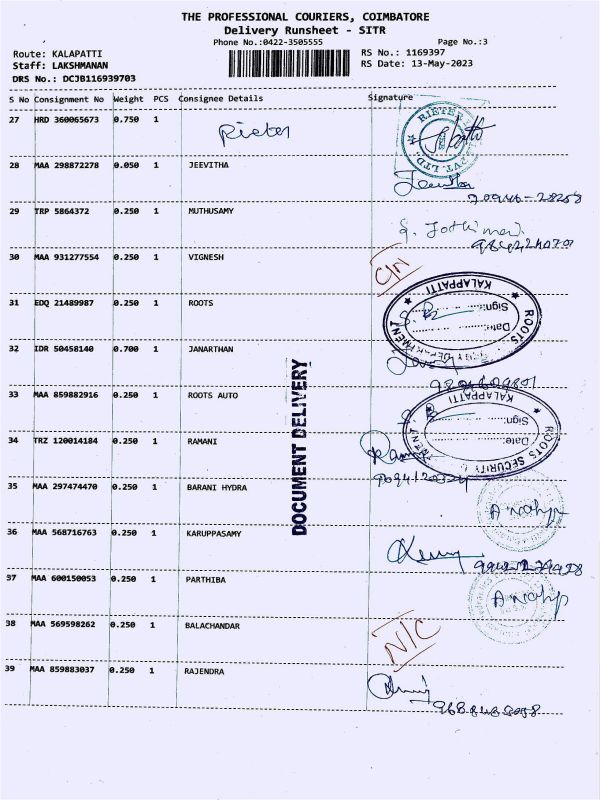 THE PROFESSIONAL COURIERS, COIMBATORE
Delivery Runsheet - SITR
Phone No.:0422-3505555 Page No.:3
Route: KALAPATTI RS No.: 1169397
Staff: LAKSHMANAN RS Date: 13-May-2023
DRS No.: DCJB116939703
S No Consignment No Weight PCS Consignee Details Signature
27 HRD 360065673 0.750 1 Rieter
28 MAA 298872278 0.050 1 JEEVITHA
29 TRP 5864372 0.250 1 MUTHUSAMY
30 MAA 931277554 0.250 1 VIGNESH
C/N
KALAPPATTI
31 EDQ 21489987 0.250 1 ROOTS
Sign:
Date:
32 IDR 50458140 0.700 1 JANARTHAN
DOCUMENT DELIVERY
33 MAA 859882916 0.250 1 ROOTS AUTO
KALAPPATTI
Sign:
34 TRZ 120014184 0.250 1 RAMANI
Date:
ROOTS SECURITY
35 MAA 297474470 0.250 1 BARANI HYDRA
36 MAA 568716763 0.250 1 KARUPPASAMY
37 MAA 600150053 0.250 1 PARTHIBA
38 MAA 569598262 0.250 1 BALACHANDAR
N/C
39 MAA 859883037 0.250 1 RAJENDRA